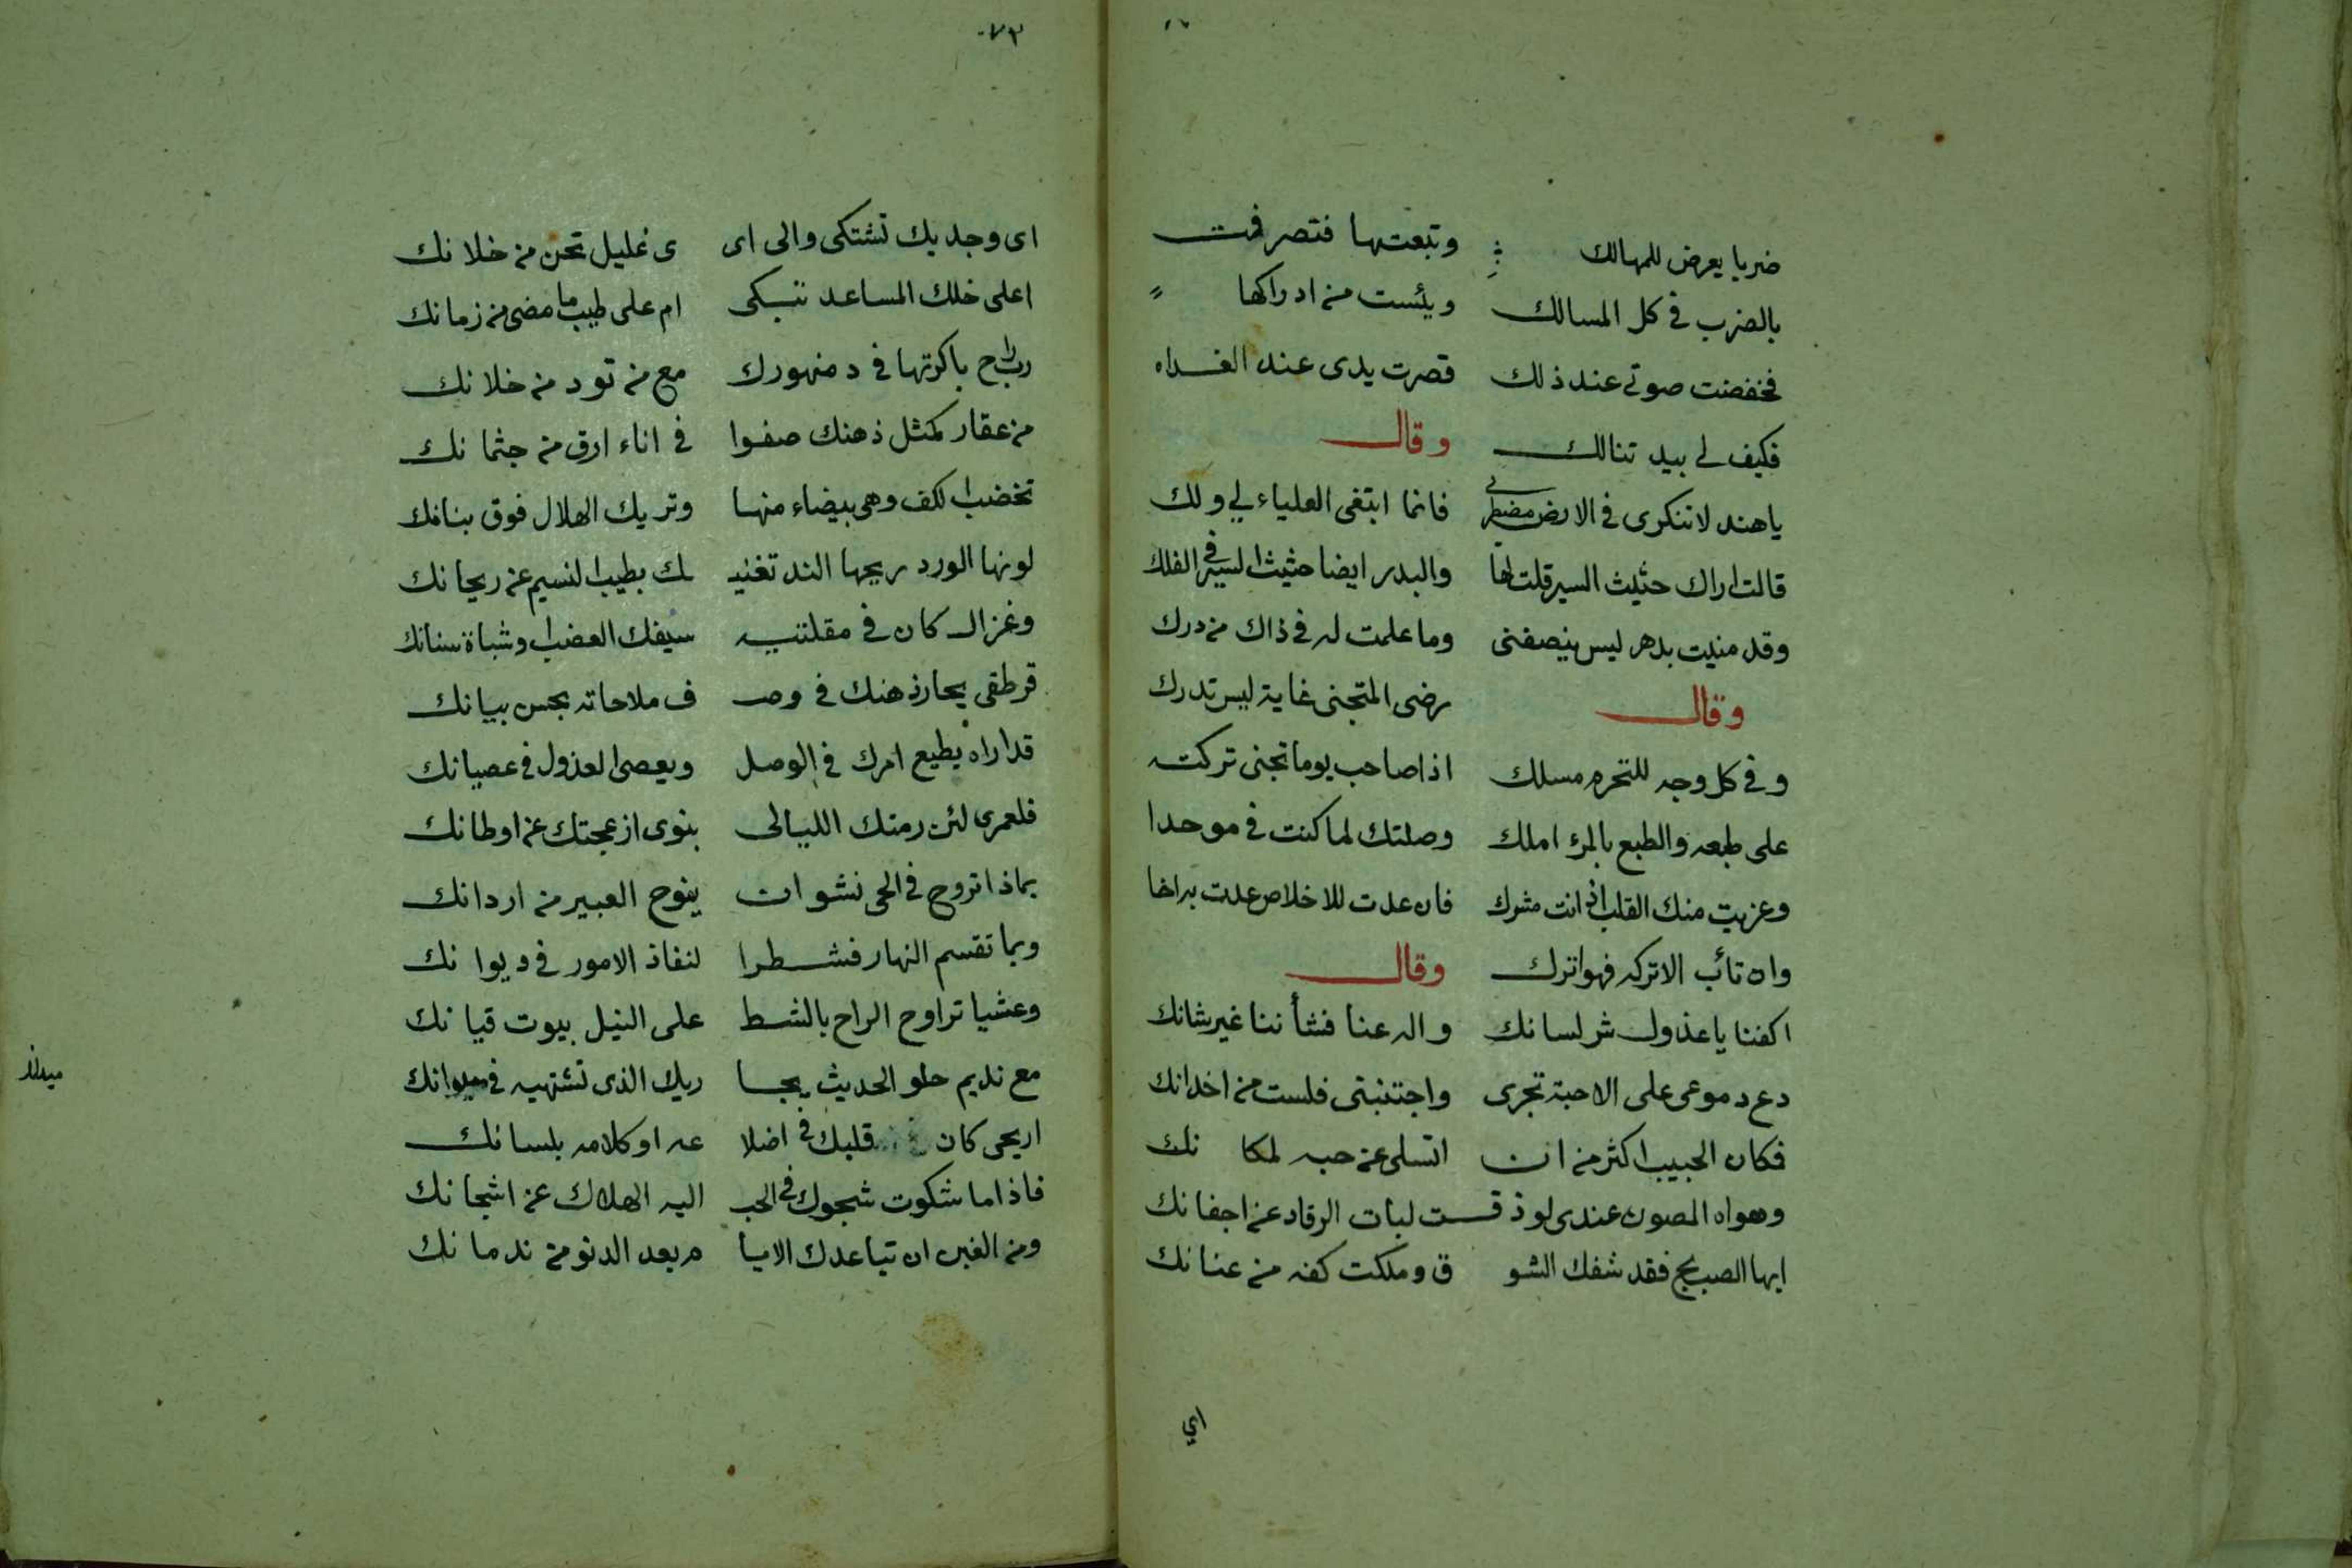 ضربا يعرض للمهالك وتبعتها فتصرفت
بالضرب في كل المسالك ويئست من ادراكها
فخفضت صوتي عند ذلك قصرت يدى عند الغداه
فكيف لي بيد تنالك وقال
ياهند لا تنكرى في الارض مضطربي فانما ابتغى العلياء لي ولك
قالت اراك حثيث السير قلت لها والبدر ايضا حثيث السير في الفلك
وقد منيت بدهر ليس ينصفنى وما علمت له في ذاك من درك
وقال رضى المتجنى غاية ليس تدرك
وفي كل وجه للتجرم مسلك اذا صاحب يوما تجنى تركته
على طبعه والطبع بالمرء املك وصلتك لما كنت في موحدا
وعزيت منك القلب اذ انت مشرك فان عدت للاخلاص عدت به اخا
وان تأب الا تركه فهو اترك وقال
اكفنا يا عذول شر لسانك واله عنا فشأننا غير شانك
دع دموعى على الاحبة تجرى واجتنبنى فلست من اخدانك
فكان الحبيب اكثر من ان اتسلى عن حبه لمكانك
وهواه المصون عندى لو ذقت لبات الرقاد عن اجفانك
ايها الصب بح فقد شفك الشو ق وملكت كفه من عنانك
اي
٧٣
اى وجد بك تشتكى والى اى ى غليل تحن من خلانك
اعلى خلك المساعد تبكى ام على طيب ما مضى من زمانك
رب راح باكرتها في دمنهورك مع من تود من خلانك
من عقار كمثل ذهنك صفوا في اناء ارق من جثمانك
تخضب الكف وهى بيضاء منها وتريك الهلال فوق بنانك
لونها الورد ريحها الند تغنيـ ـك بطيب النسيم عن ريحانك
وغزال كان في مقلتيه سيفك العضب او شباة سنانك
قرطقى يحار ذهنك في وصـ ف ملاحاته بحسن بيانك
قد اراه يطيع امرك في الوصل ويعصى العذول في عصيانك
فلعمرى لئن رمتك الليالى بنوى ازعجتك عن اوطانك
بماذا تروح في الحى نشوان ينوح العبير من اردانك
وبما تقسم النهار فشطرا لنفاذ الامور في ديوانك
وعشيا تراوح الراح بالشط على النيل بيوت قيانك
مع نديم حلو الحديث يجا ريك الذى تشتهيه في ميدانك
ميدانك
اريحى كان قلبك في اضلا عه او كلامه بلسانك
فاذا ما شكوت شجوك في الحب اليه الهلاك عن اشجانك
ومن الغبن ان تباعدك الايا م بعد الدنو من ندمانك